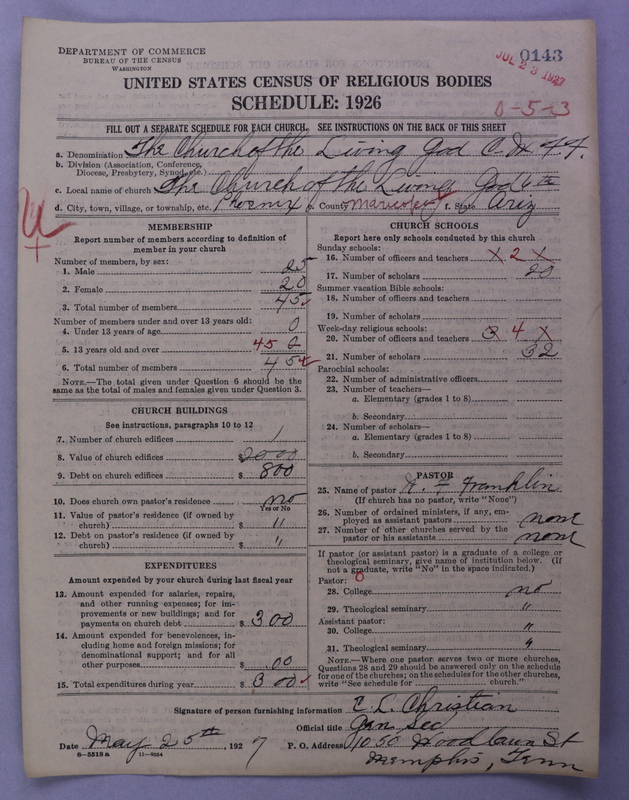 DEPARTMENT OF COMMERCE
BUREAU OF THE CENSUS
WASHINGTON
0143
JUL 23 1927
UNITED STATES CENSUS OF RELIGIOUS BODIES
SCHEDULE: 1926
0-5-3
FILL OUT A SEPARATE SCHEDULE FOR EACH CHURCH. SEE INSTRUCTIONS ON THE BACK OF THIS SHEET
a. Denomination The Church of the Living God
b. Division (Association, Conference, Diocese, Presbytery, Synod, etc.)
c. Local name of church The Church of the Living God 6th
d. City, town, village, or township, etc. Phoenix e. County Maricopa f. State Ariz
MEMBERSHIP
Report number of members according to definition of
member in your church
Number of members, by sex:
1. Male 25
2. Female 20
3. Total number of members 45
Number of members under and over 13 years old:
4. Under 13 years of age 0
5. 13 years old and over 45
6. Total number of members 45
NOTE.—The total given under Question 6 should be the
same as the total of males and females given under Question 3.
CHURCH BUILDINGS
See instructions, paragraphs 10 to 12
7. Number of church edifices 1
8. Value of church edifices $2000
9. Debt on church edifices $ 800
10. Does church own pastor's residence no
Yes or No
11. Value of pastor's residence (if owned by
church) $ "
12. Debt on pastor's residence (if owned by
church) $ "
EXPENDITURES
Amount expended by your church during last fiscal year
13. Amount expended for salaries, repairs,
and other running expenses; for im-
provements or new buildings; and for
payments on church debt $ 300
14. Amount expended for benevolences, in-
cluding home and foreign missions; for
denominational support; and for all
other purposes $ 00
15. Total expenditures during year $ 300
CHURCH SCHOOLS
Report here only schools conducted by this church
Sunday schools:
16. Number of officers and teachers X 2 X
17. Number of scholars 20
Summer vacation Bible schools:
18. Number of officers and teachers
19. Number of scholars
Week-day religious schools:
20. Number of officers and teachers 3 4 X
21. Number of scholars 32
Parochial schools:
22. Number of administrative officers
23. Number of teachers—
a. Elementary (grades 1 to 8)
b. Secondary
24. Number of scholars—
a. Elementary (grades 1 to 8)
b. Secondary
PASTOR
25. Name of pastor Franklin
(If church has no pastor, write "None")
26. Number of ordained ministers, if any, em-
ployed as assistant pastors none
27. Number of other churches served by the
pastor or his assistants none
If pastor (or assistant pastor) is a graduate of a college or
theological seminary, give name of institution below. (If
not a graduate, write "No" in the space indicated.)
Pastor:
28. College no
29. Theological seminary "
Assistant pastor:
30. College "
31. Theological seminary "
NOTE.—Where one pastor serves two or more churches,
Questions 28 and 29 should be answered only on the schedule
for one of the churches; on the schedules for the other churches,
write "See schedule for church."
Signature of person furnishing information E. L. Christian
Official title Gen Sec
Date May 25th, 1927 P. O. Address 1050 Woodlawn St
8-5518 a 11-9054 Memphis, Tenn